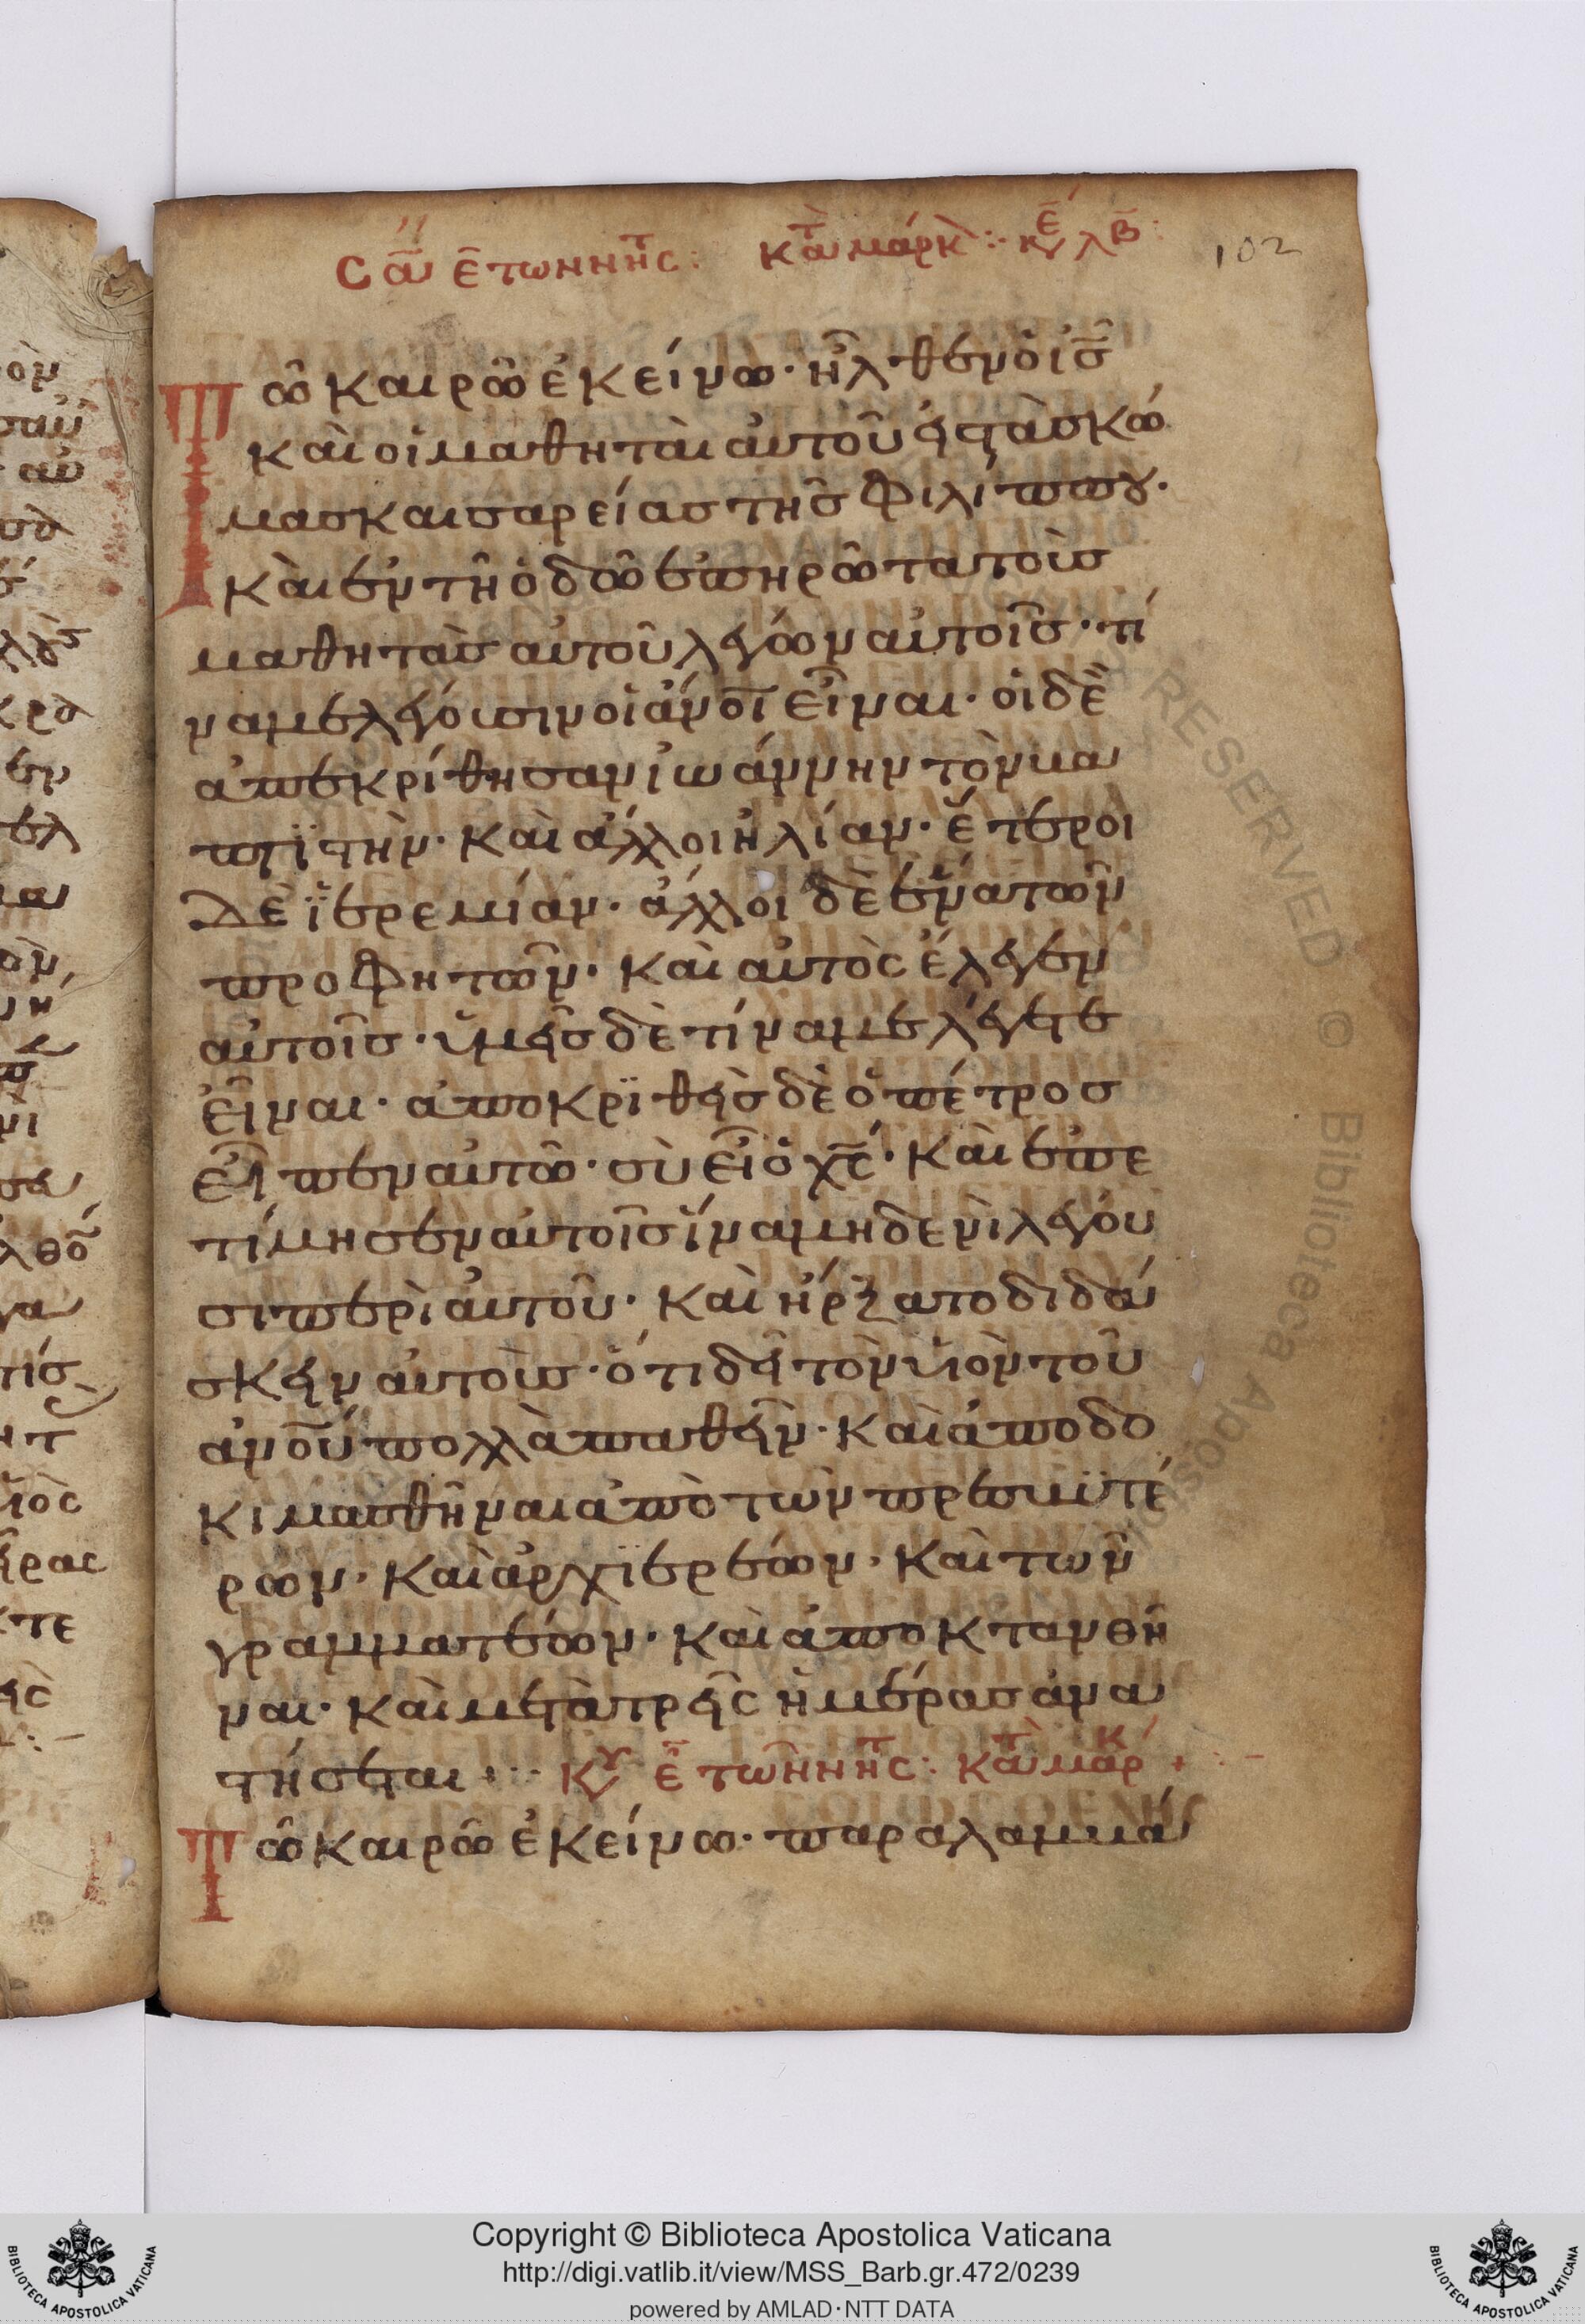 Σα ε των νηστ: κατα μαρκ: κυ λβ
102
Τῶ καιρῶ ἐκείνω· ἦλθεν ὁ ις
καὶ οἱ μαθηταὶ αὐτοῦ εἰς τὰς κώ
μας καισαρείας τῆς Φιλίππου·
καὶ ἐν τῆ ὁδῶ ἐπηρῶτα τοὺς
μαθητὰς αὐτοῦ λέγων αὐτοῖς· τί
να με λέγουσιν οἱ ἀνοι εἶναι· οἱ δὲ
ἀπεκρίθησαν ἰωάννην τὸν βα
πτϊστὴν· καὶ ἄλλοι ἠλίαν· ἕτεροι
δὲ ϊερεμίαν· ἄλλοι δὲ ἕνα τῶν
προφητῶν· καὶ αὐτὸς ἔλεγεν
αὐτοῖς· ὑμεῖς δὲ τίνα με λέγετε
εἶναι· ἀποκρϊθεὶς δὲ ὁ πέτρος
εἶπεν αὐτῶ· σὺ εἶ ὁ χς· καὶ ἐπε
τίμησεν αὐτοῖς ἵνα μηδενὶ λέγου
σι περὶ αὐτοῦ· καὶ ἤρξατο διδά
σκειν αὐτοὺς· ὅτι δεῖ τὸν υἱὸν τοῦ
ἀνου πολλὰ παθεῖν· καὶ ἀποδο
κιμασθῆναι ἀπὸ τῶν πρεσβϋτέ
ρων· καὶ ἀρχϊερέων· καὶ τῶν
γραμματέων· καὶ ἀποκτανθῆ
ναι· καὶ μετὰ τρεῖς ἡμέρας ἀνα
στήσεται :· κυ ε των νηστ: κατα μαρκ +
Τῶ καιρῶ ἐκείνω· παραλαμβά
Copyright © Biblioteca Apostolica Vaticana
http://digi.vatlib.it/view/MSS_Barb.gr.472/0239
powered by AMLAD·NTT DATA